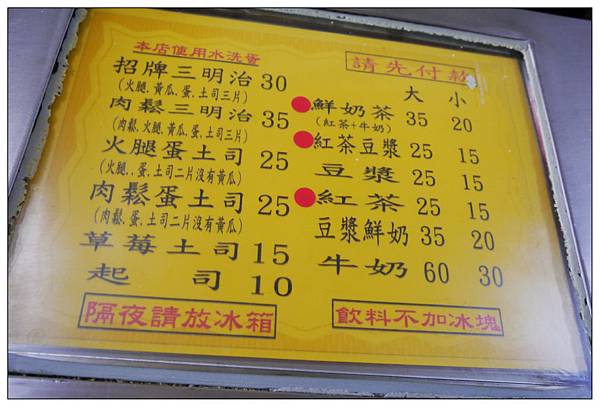 本店使用水洗蛋
招牌三明治 30
(火腿.黃瓜.蛋.土司三片)
肉鬆三明治 35
(肉鬆.火腿.黃瓜.蛋.土司三片)
火腿蛋土司 25
(火腿.蛋.土司二片沒有黃瓜)
肉鬆蛋土司 25
(肉鬆.蛋.土司二片沒有黃瓜)
草莓土司 15
起司 10
隔夜請放冰箱
請先付款
大 小
鮮奶茶 35 20
(紅茶+牛奶)
紅茶豆漿 25 15
豆漿 25 15
紅茶 25 15
豆漿鮮奶 35 20
牛奶 60 30
飲料不加冰塊